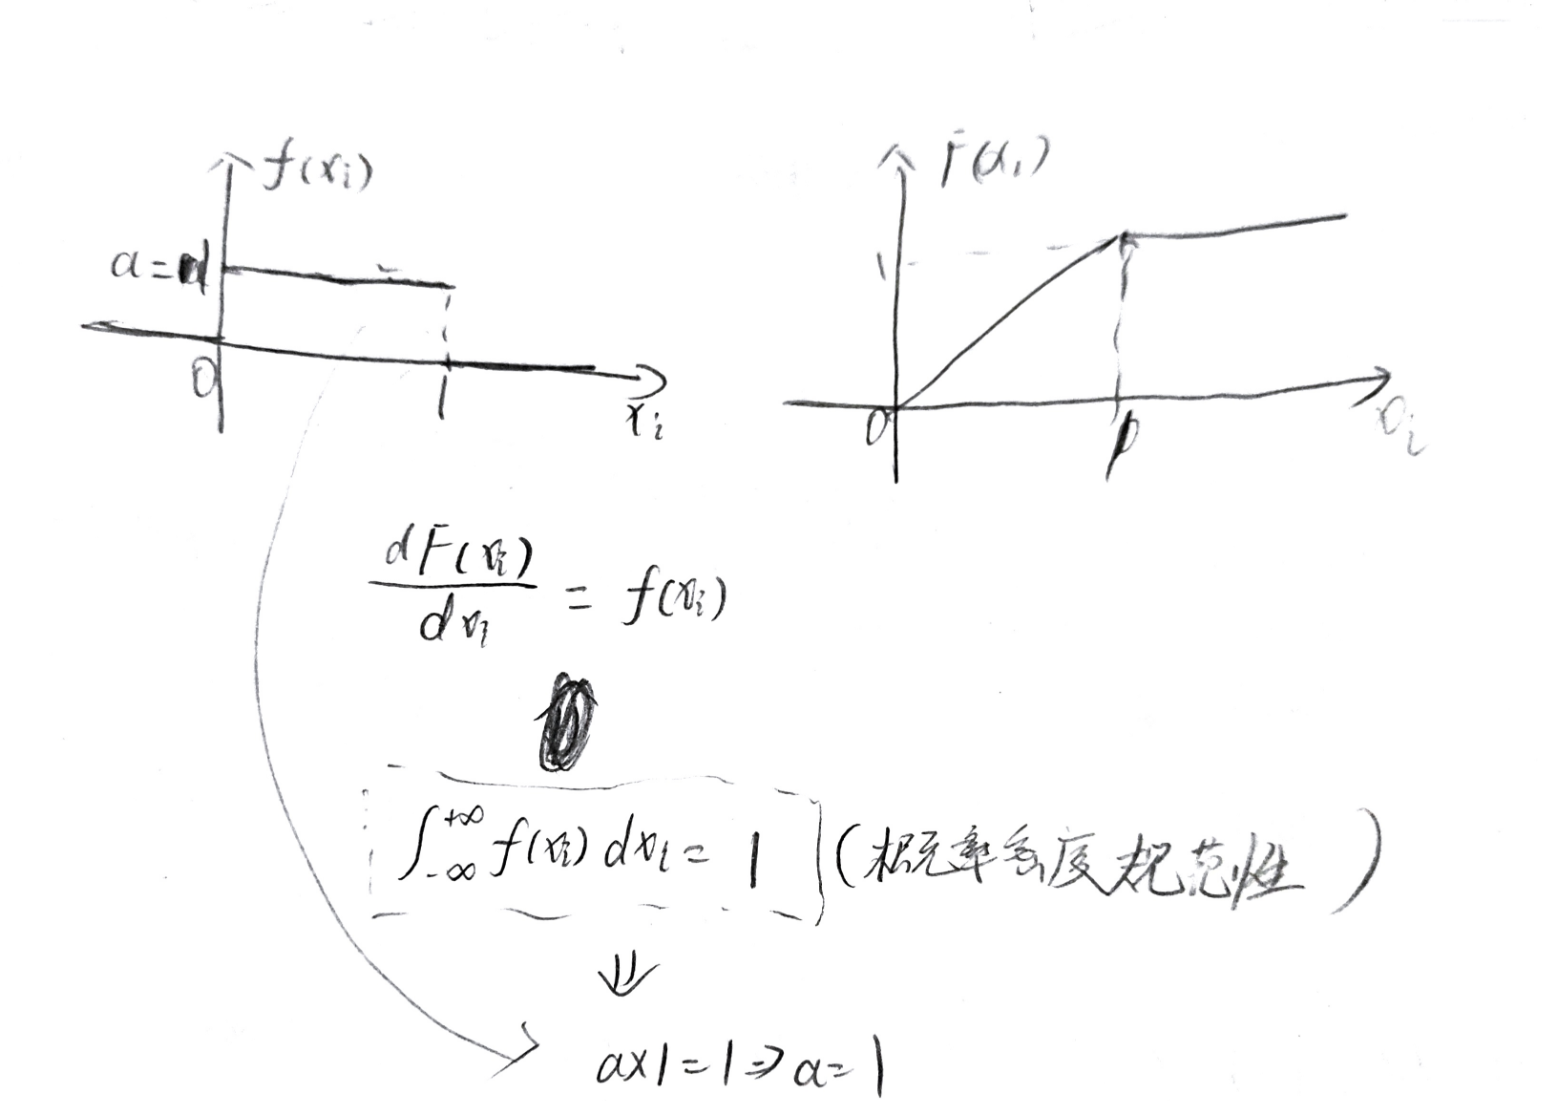 f(xᵢ)
a=1
0
1
xᵢ
F(xᵢ)
1
0
xᵢ
dF(xᵢ)/dxᵢ = f(xᵢ)
∫_{-∞}^{+∞} f(xᵢ) dxᵢ = 1 (概率密度规范性)
⇓
a×1=1⇒a=1